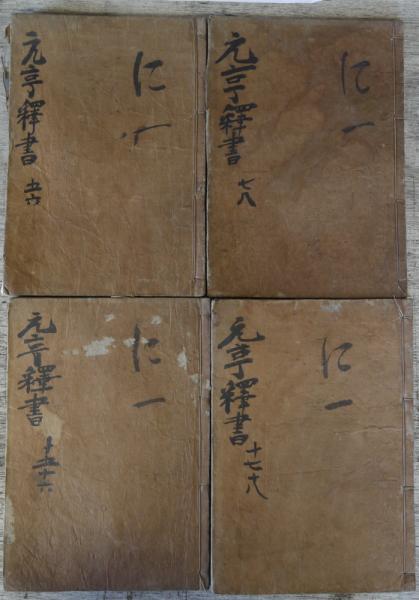 元亨釋書
五六
に一
元亨釋書
七八
に一
元亨釋書
十五十六
に一
元亨釋書
十七十八
に一